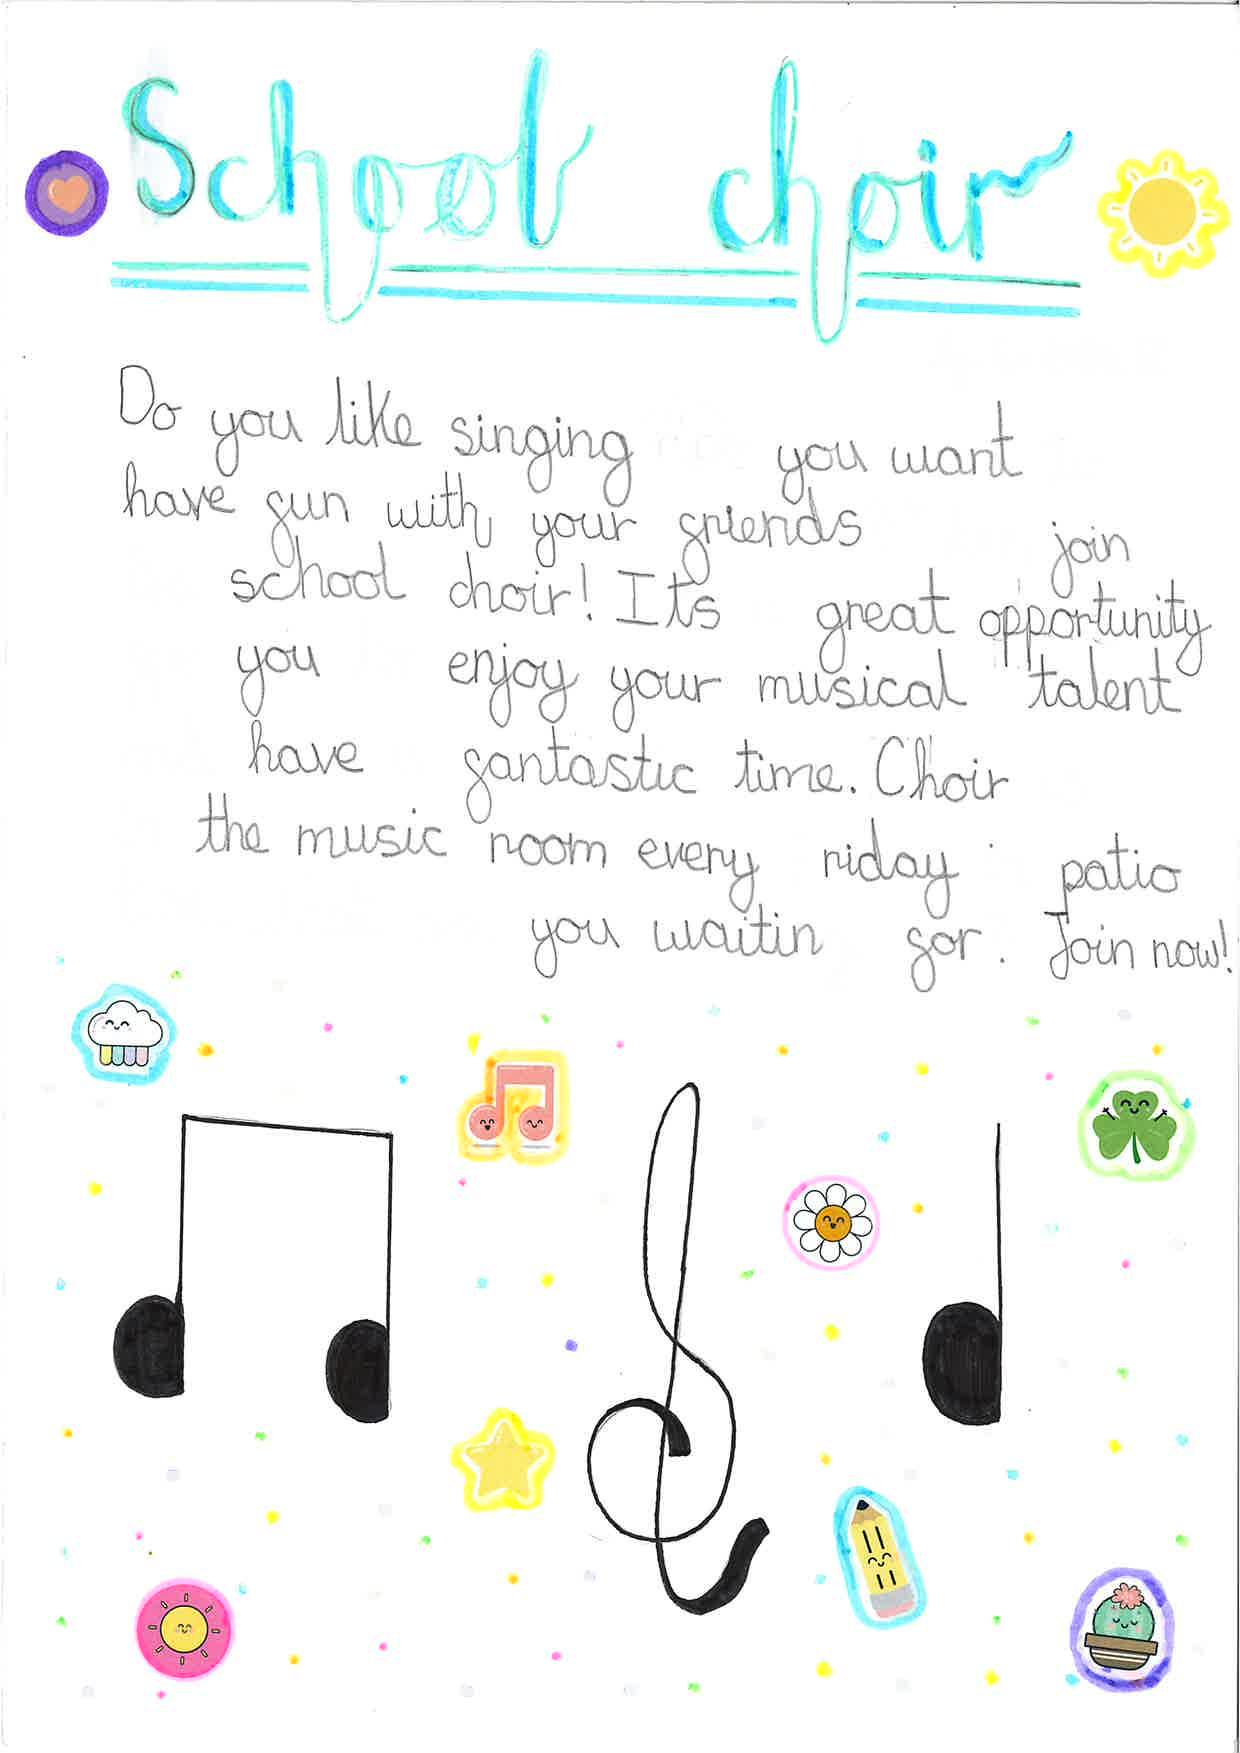 School choir
Do you like singing you want
have fun with your friends join
school choir! Its great opportunity
you enjoy your musical talent
have fantastic time. Choir
the music room every riday patio
you waitin for. Join now!